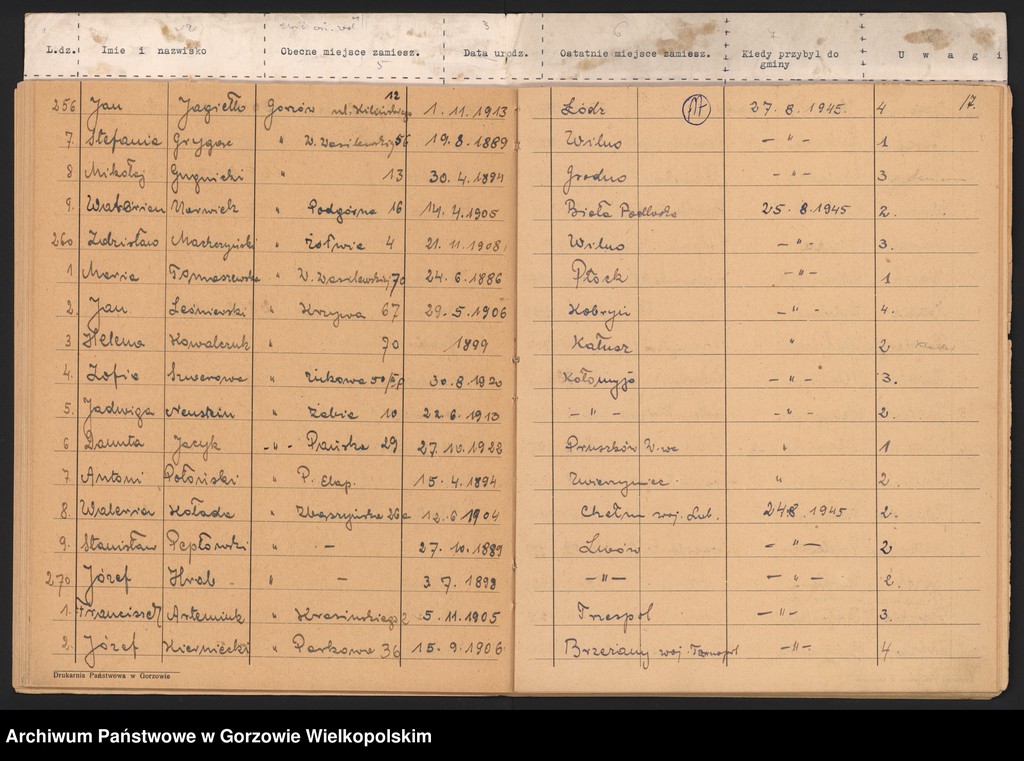 L.dz. Imie i nazwisko Obecne miejsce zamiesz. Data urodz. Ostatnie miejsce zamiesz. Kiedy przybył do gminy U w a g i
17.
256 Jan Jagiełło Gorzów ul. 12 1.11.1913 Łódz 17 27.8.1945. 4
7. Stefania Grygorc " W. Wasilewskiej 56 19.8.1889 Wilno — " — 1
8 Mikołaj " 13 30.4.1894 Grodno — " — 3
9. " Podgórna 16 14.4.1905 Biała Podlaska 25.8.1945 2.
260 Zdzisław " Żółwia 4 21.11.1908 Wilno — " — 3.
1 Maria Tomaszewska " W. Wasilewskiej 70 24.6.1886 Płock — " — 1
2. Jan Leśniewski " Krzywa 67 29.5.1906 Kobryń — " — 4.
3 Helena Kowalczuk " 70 1899 Kałusz " 2
4. Zofia Szwerowa " 30.8.1920 Kołomyja — " — 3.
5. Jadwiga Neustein " Żabia 10 22.6.1913 — " — — " — 2.
6 Danuta Jacyk — " — Pańska 29 27.10.1928 Pruszków W-wa " 1
7. Antoni Połoński " P. Etap. 15.4.1894 Zwierzyniec " 2.
8. Waleria Hołada " Zbąszyńska 26a 12.6.1904 Chełm woj. Lub. 24.8.1945 2.
9. Stanisław Pepłowski " — 27.10.1889 Lwów — " — 2
270 Józef Hrab " — 3.7.1898 — " — — " — 2.
1. Franciszek Artemiuk " Krasińskiego 2 5.11.1905 Trespol — " — 3.
2. Józef Kiernicki " Parkowa 36 15.9.1906 Brzeżany woj. Tarnopol — " — 4.
Drukarnia Państwowa w Gorzowie
Archiwum Państwowe w Gorzowie Wielkopolskim